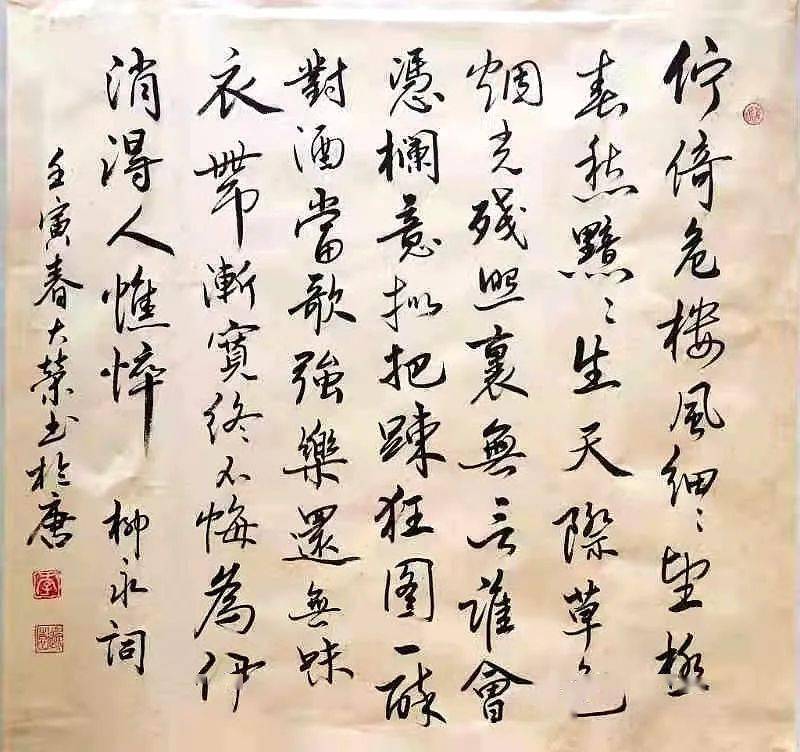 佇倚危楼風細〻望極
春愁黯〻生天際草色
烟光残照裏無言誰會
憑欄意拟把踈狂图一醉
對酒當歌強樂還無味
衣帶漸寬終不悔為伊
消得人憔悴 柳永詞
壬寅春大榮书於唐